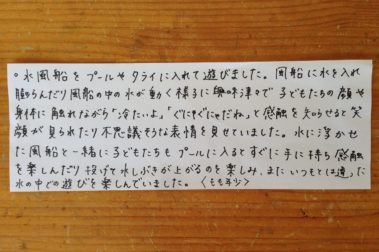 ○水風船をプールやタライに入れて遊びました。風船に水を入れ
膨らんだり風船の中の水が動く様子に興味津々で子どもたちの顔や
身体に触れながら「冷たいよ」「ぐにゃぐにゃだね」と感触を知らせると笑
顔が見られたり不思議そうな表情を見せていました。水に浮かせ
た風船と一緒に子どもたちもプールに入るとすぐに手に持ち感触
を楽しんだり投げて水しぶきが上がるのを楽しみ、またいつもとは違った
水の中での遊びを楽しんでいました。〈もも年少〉